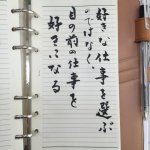 好きな仕事を選ぶ
のではなく、
目の前の仕事を
好きになる